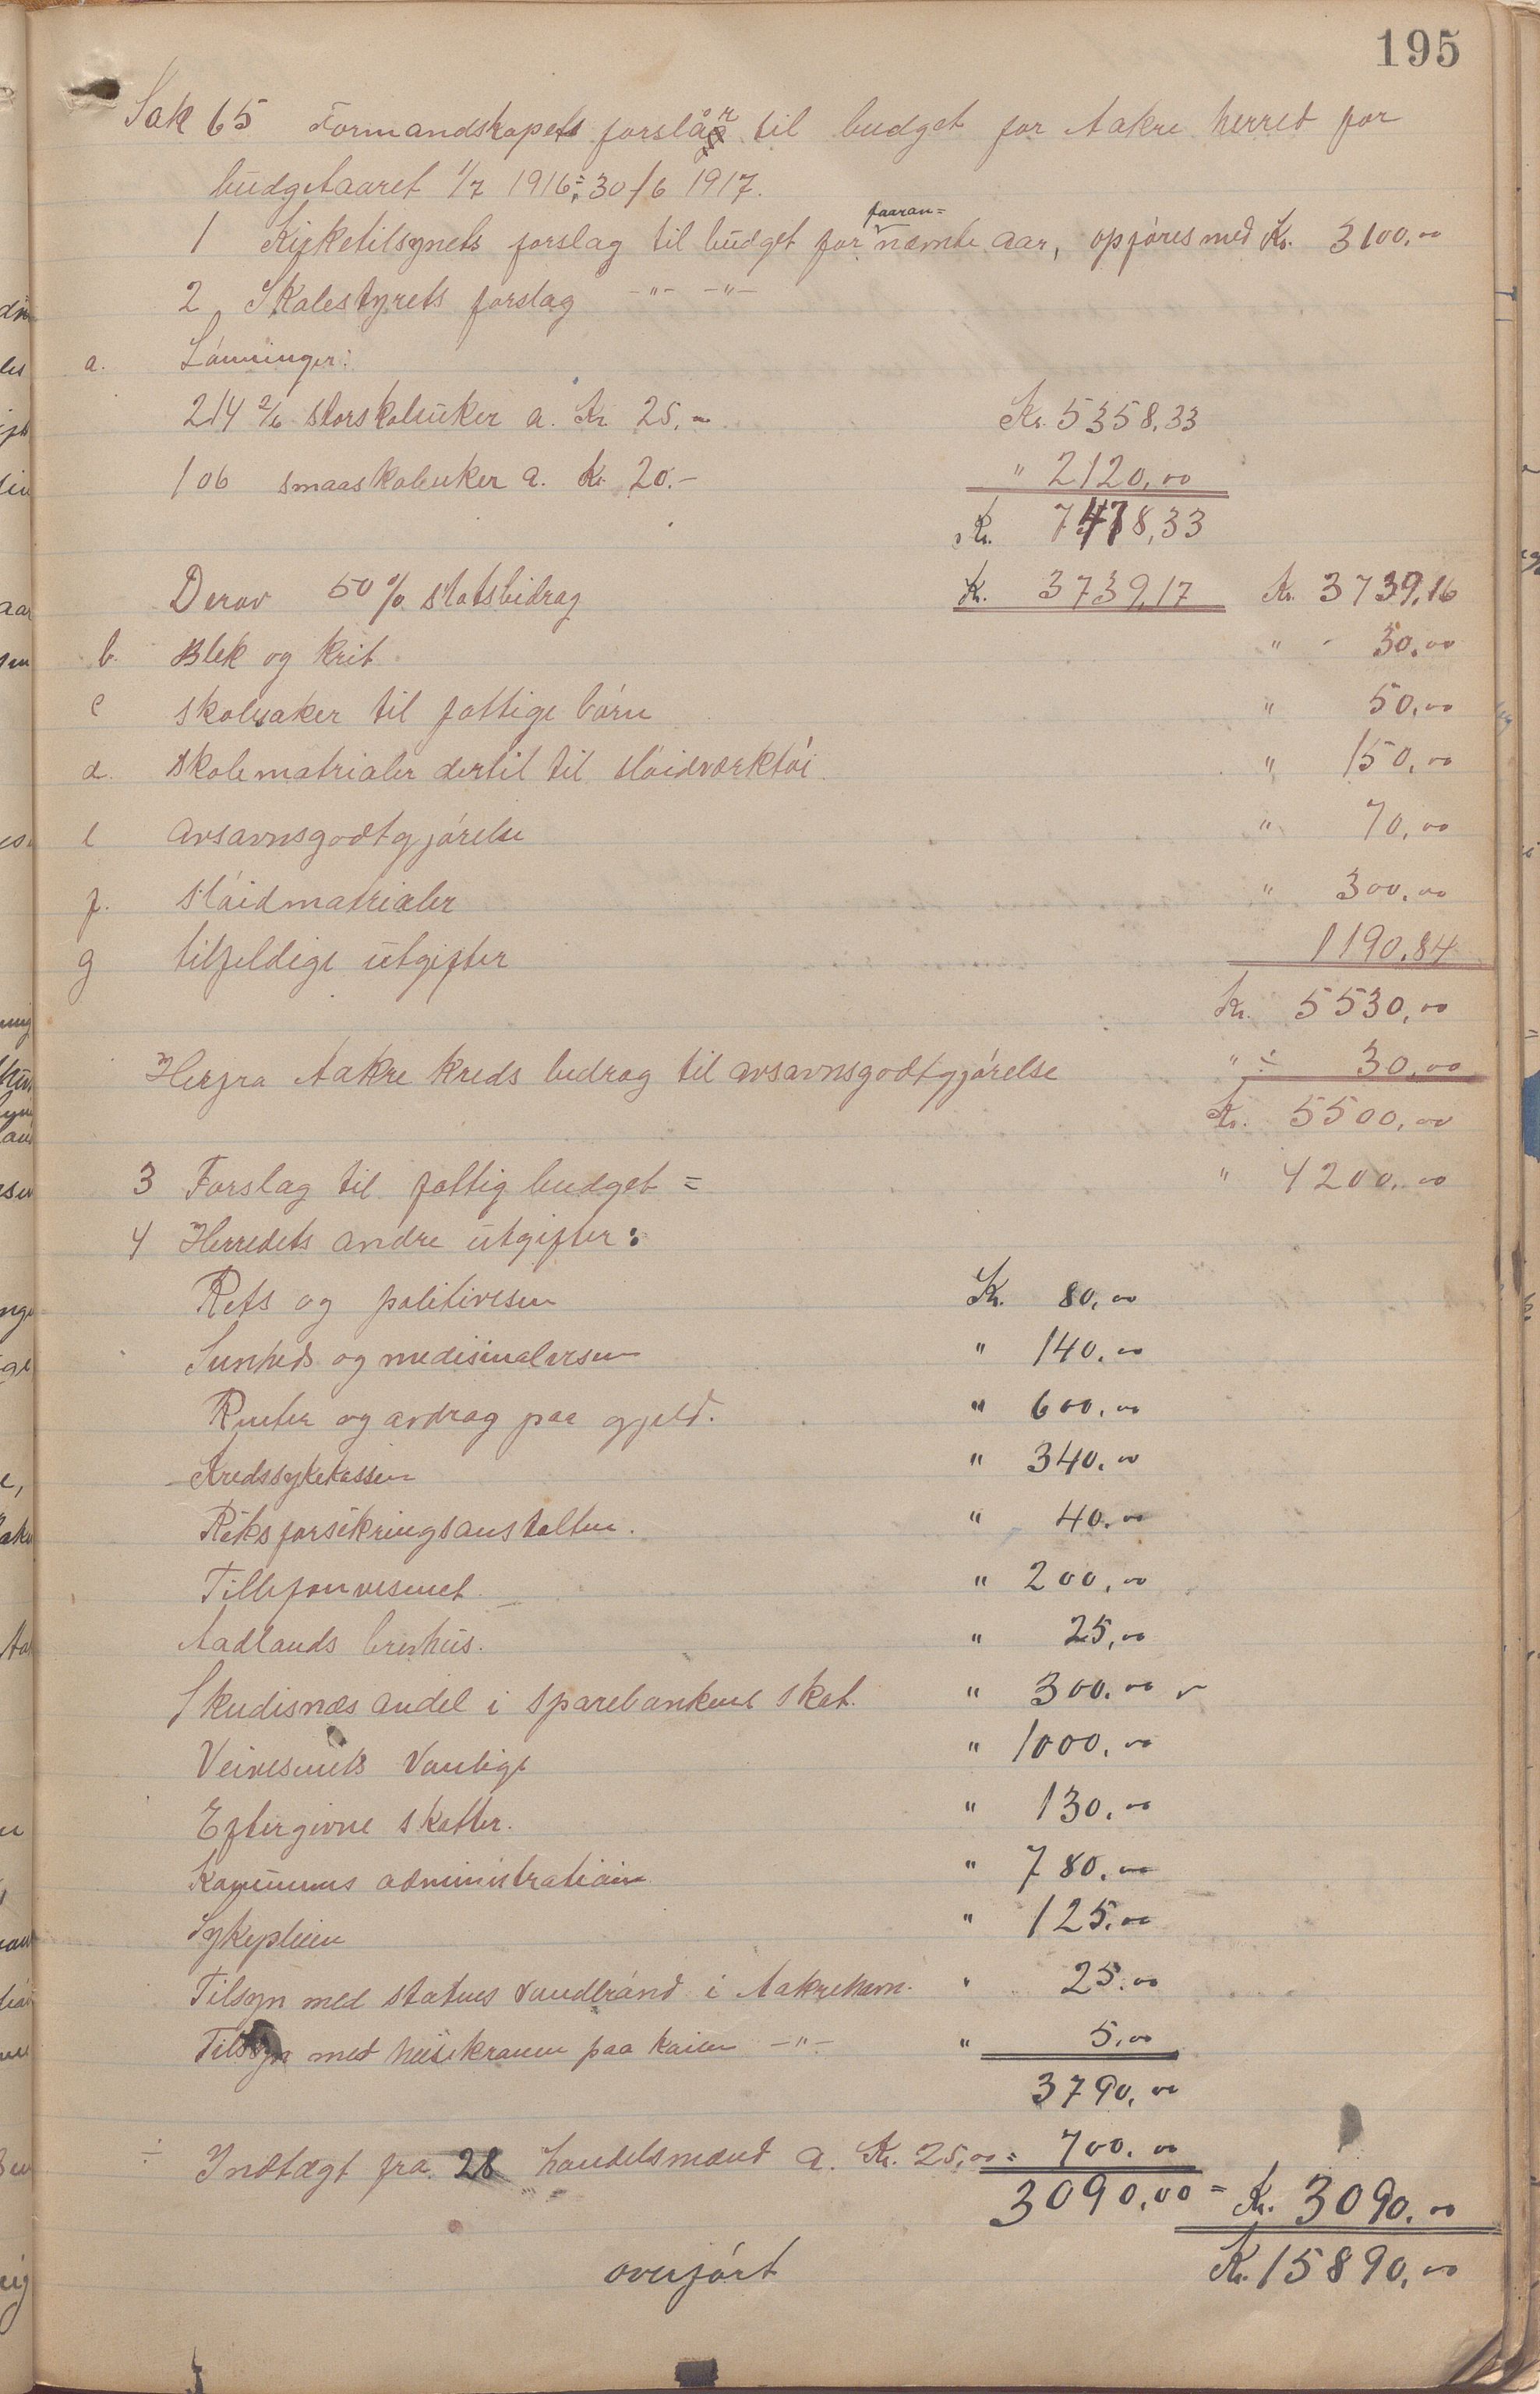 195
Sak 65 Formandskapets forslår til budget for Aakre herred for
budgetaaret 1/7 1916 ÷ 30/6 1917.
1 Kirketilsynets forslag til budget for foran= nævnte aar, opføres med Kr. 3100,00
2 Skolestyrets forslag -"- -"-
a. Lønninger:
214 2/6 storskoleuker a. Kr 25,- Kr. 5358,33
106 smaaskoleuker a. Kr. 20.- " 2120,00
Kr. 7478,33
Derav 50 % statsbidrag Kr. 3739,17 Kr. 3739,16
b. Blek og krit " 30,00
c skolesaker til fattige børn " 50,00
d. Skolematrialer dertil til sløidverktøi. " 150,00
e avsavnsgodtgjørelse " 70,00
f. sløidmatrialer " 300,00
g tilfeldige utgifter 1190,84
Kr. 5530,00
Herfra Aakre kreds bedrag til avsavnsgodtgjørelse " ÷ 30,00
Kr. 5500,00
3 Forslag til fattig budget = " 4200,00
4 Herredets andre utgifter:
Rets og politivesen Kr. 80,00
Sunheds og medisinalvesen " 140,00
Renter og avdrag paa gjeld. " 600,00
Kredssykekassen " 340,00
Riksforsikringsanstalten. " 40,00
Tillefonvesenet " 200,00
Aadlands brevhus. " 25,00
Skudisnæs andel i sparebankens skat. " 300,00
Veivesenets vanlige " 1000,00
Eftergivne skatter. " 130,00
Komunens administration " 780,00
Sykepleien " 125,00
Tilsyn med statens vandbrønd i Aakrehavn. " 25,00
Tilsyn med heisekranen paa kaien -"- " 5,00
3790,00
÷ Indtægt fra 28 handelsmænd a. Kr. 25,00 = 700,00
3090,00 = Kr. 3090,00
overført Kr. 15890,00